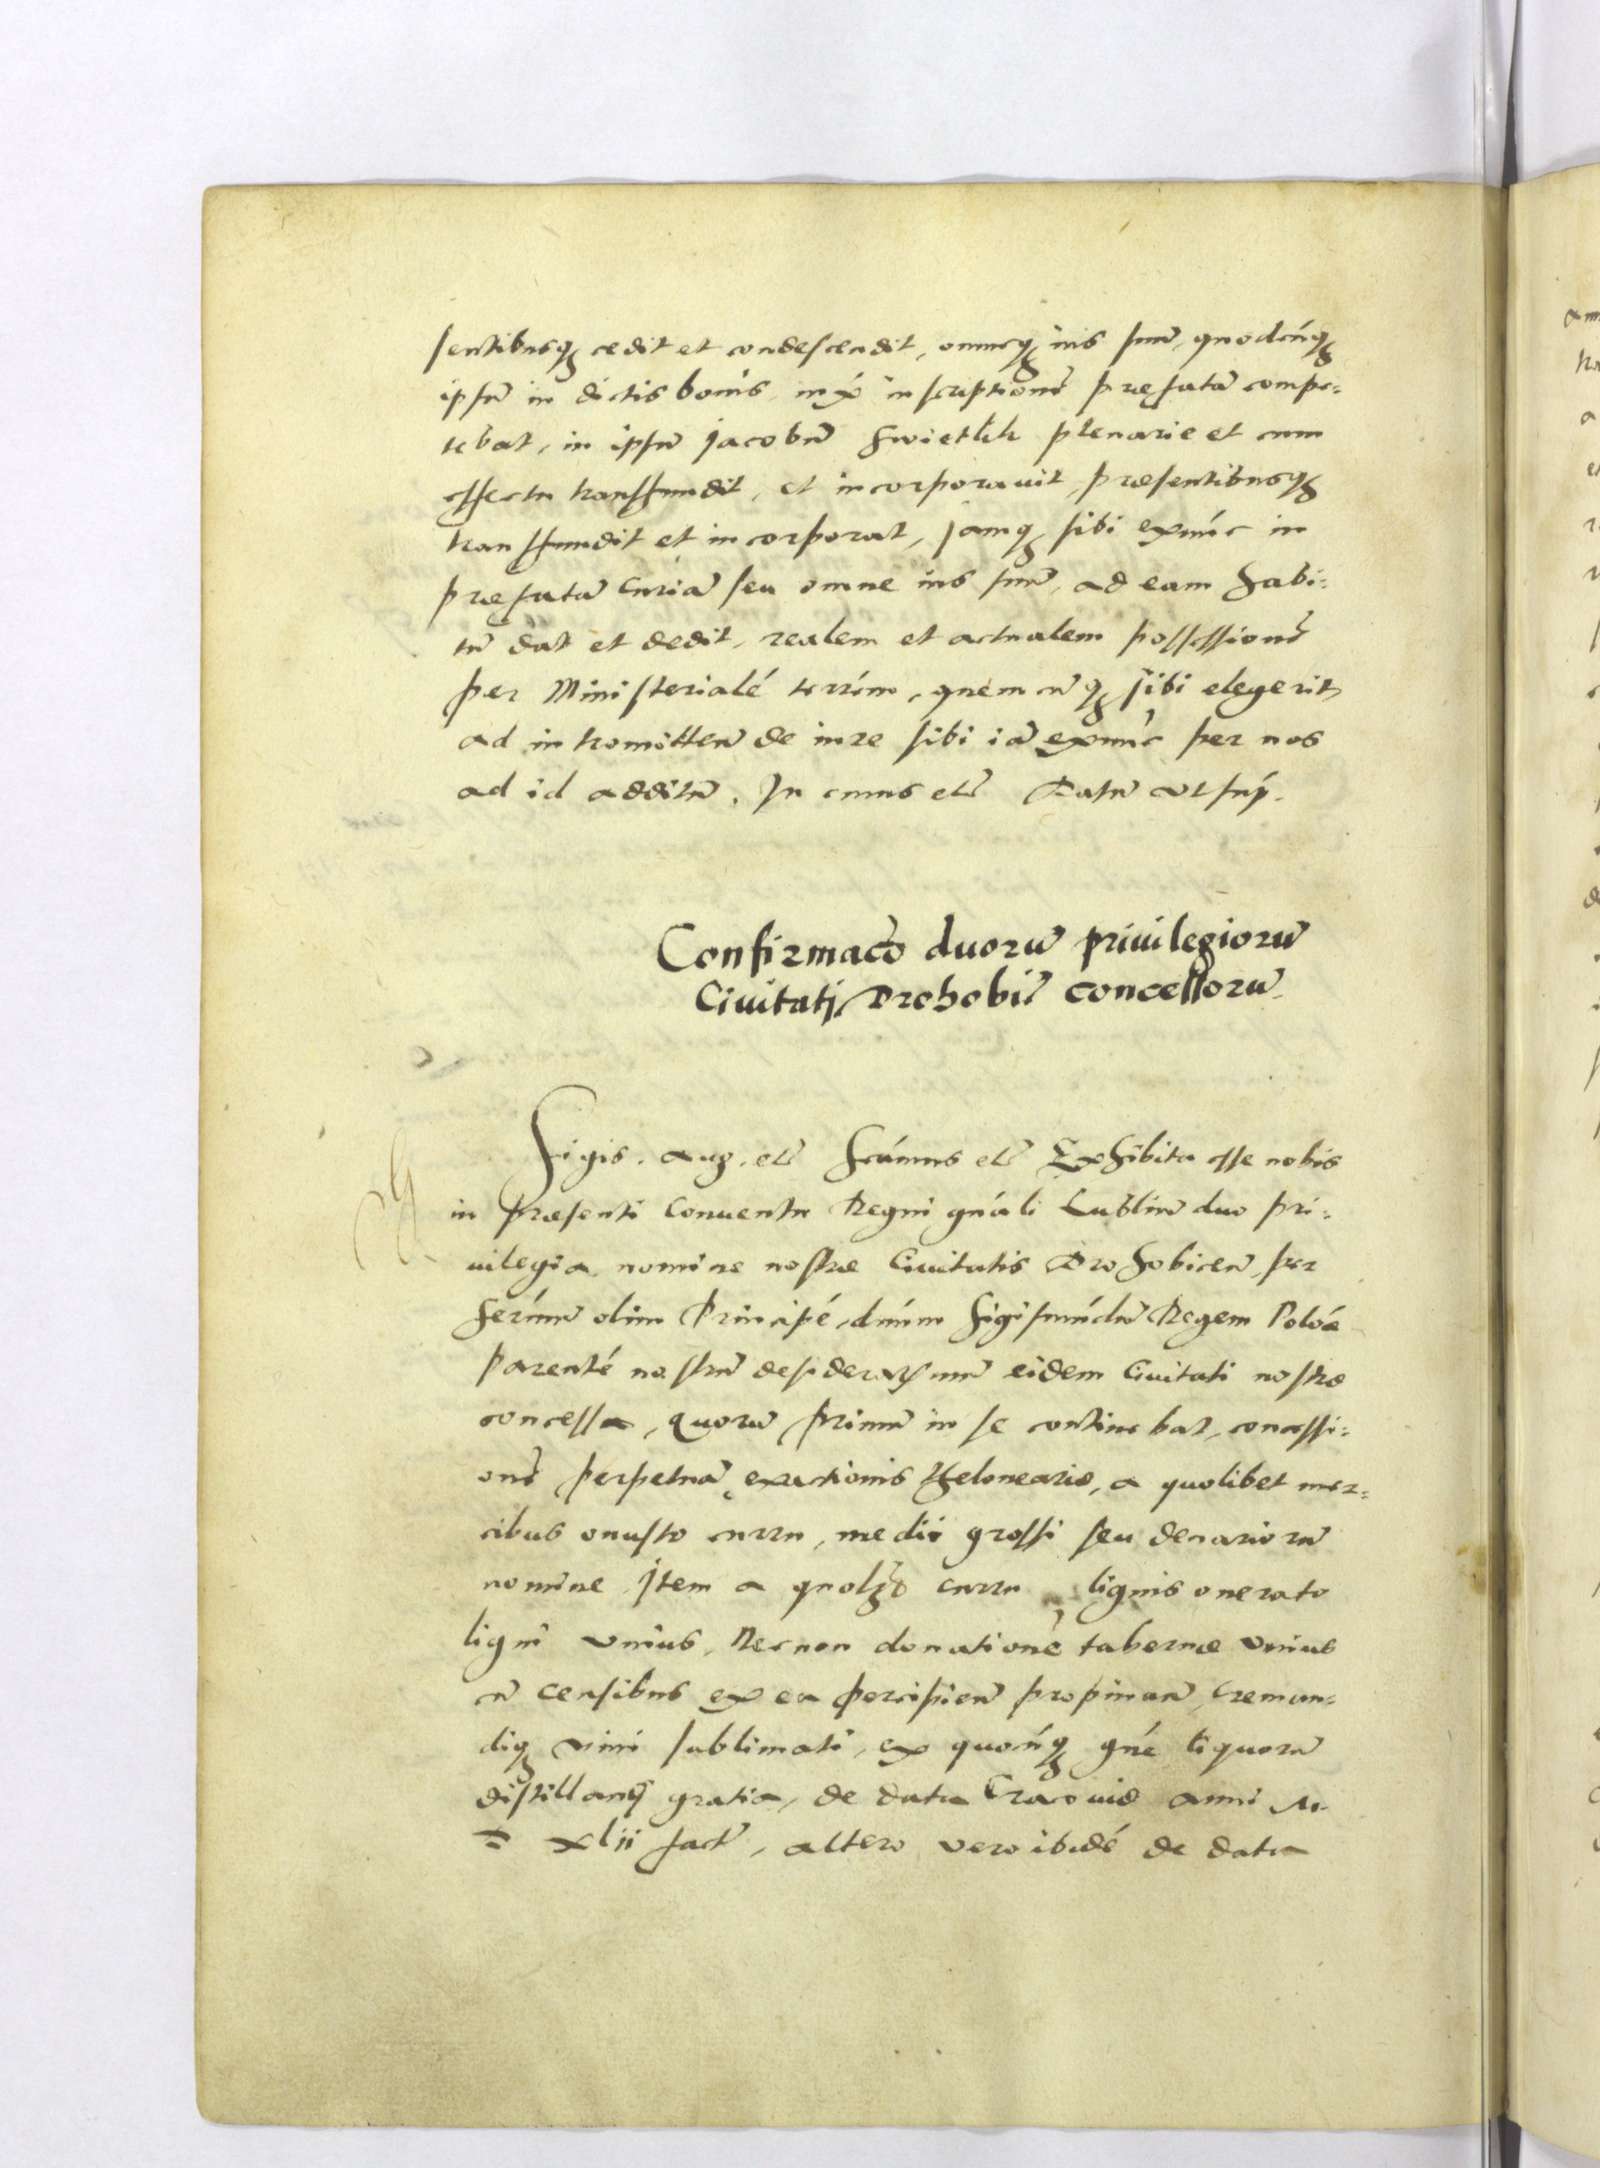 sentibusq cedit et condescendit, omneq ius suũ, quodcũq
ipsũ in dictis bonis, inxᵃ inscriptionẽ præfatã compe-
tebat, in ipsũ Jacobũ Swietlik plenarie et cum
effectu transfundit, et incorporauit, præsentibusq
transfundit et incorporat, Jamq sibi exnũc in
præfatã curiã seu omne ius suũ, ad eam habi-
tũ dat et dedit, realem et actualem possessionẽ
per Ministerialẽ terrẽm, quemcũq sibi elegerit,
ad intromittẽn de iure sibi iã exnũc per nos
ad id additũ. In cuius etc̃ Datũ ut sup̃.
Confirmac̃o duorũ priuilegiorũ
Ciuitati Drohobic̃ concessorũ
Sigis. aug. etc̃ Scũmus etc̃ Exhibita esse nobis
in præsenti Conuentu Regni gñali Lublineñ duo pri-
uilegia nomine nostræ Ciuitatis Drohobiceñ, per
serm̃um olim Principẽ, dñum Sigismũdũ Regem Polõæ
parentẽ nostrũ desideratissimũ eidem Ciuitati nostræ
concessa, quorũ primũ in se continebat, concessi-
onẽ perpetuã exactionis thelonearie, a quolibet mer-
cibus onusto curru, medii grossi seu denariorũ
nomine Item a quolibet curru lignis onerato
ligni unius, Necnon donationẽ tabernæ unius
cũ censibus ex ea percipieñ propinanđ, creman-
diq vini sublimati, ex quocũq gñe liquorũ
distillandi gratia, de data Cracouiæ anni M
D xlii fact̃, altero vero ibidẽ de data